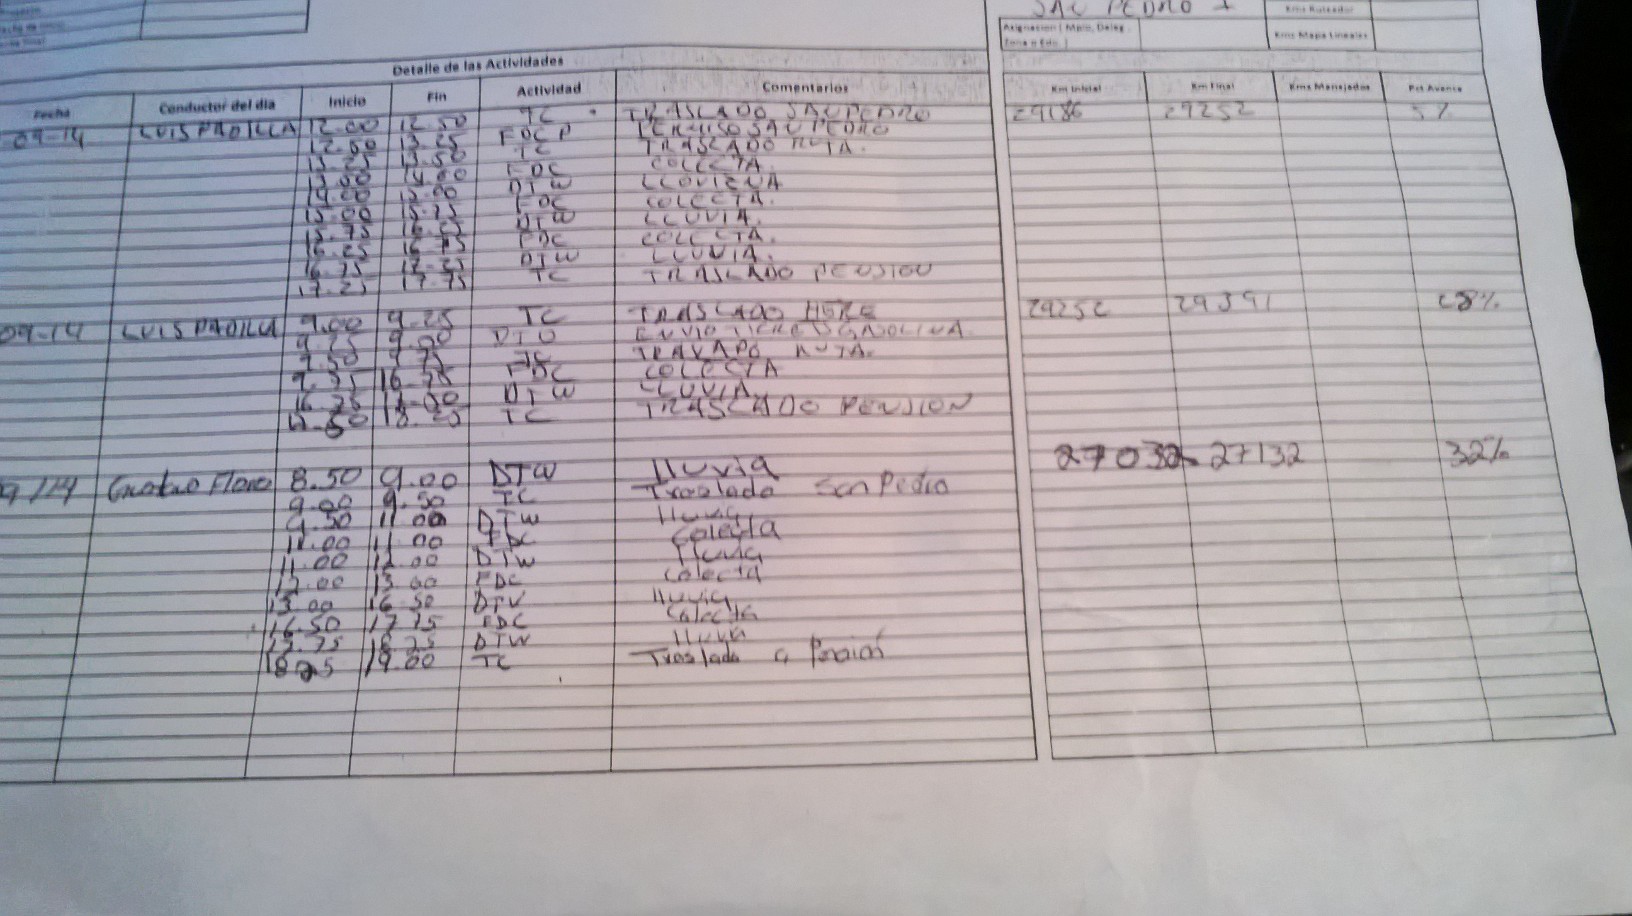 SAN PEDRO 1
Kms Ruteador
Asignacion ( Mpio, Deleg. Zona o Edo. )
Kms Mapa Lineales
Detalle de las Actividades
Fecha Conductor del dia Inicio Fin Actividad Comentarios Km Inicial Km Final Kms Manejados Pct Avance
09-14 LUIS PADILLA 12.00 12.50 TC TRASLADO SAN PEDRO 29186 29252 5%
12.50 13.25 FDCP PERMISO SAN PEDRO
13.25 13.50 TC TRASLADO RUTA.
13.50 14.00 FDC COLECTA.
14.00 15.00 DTW LLOVIZNA
15.00 15.75 FDC COLECTA.
15.75 16.25 DTW LLUVIA.
16.25 16.75 FDC COLECTA.
16.75 17.25 DTW LLUVIA.
17.25 17.75 TC TRASLADO PENSION
09-14 LUIS PADILLA 9.00 9.25 TC TRASLADO 29252 29391 28%
9.25 DTO ENVIO GASOLINA.
9.50 9.75 TC RUTA.
9.75 16.75 FDC COLECTA
16.75 DTW LLUVIA.
18.25 TC TRASLADO PENSION
27032 27132 32%
9/14 Gustavo Flores 8.50 9.00 DTW lluvia
9.00 9.50 TC Traslado San Pedro
9.50 11.00 DTW lluvia
11.00 11.00 FDC Colecta
11.00 12.00 DTW lluvia
12.00 13.00 FDC Colecta
13.00 16.50 DTW lluvia
16.50 17.75 FDC Colecta
17.75 18.25 DTW lluvia
18.25 19.00 TC Traslado a Pensión